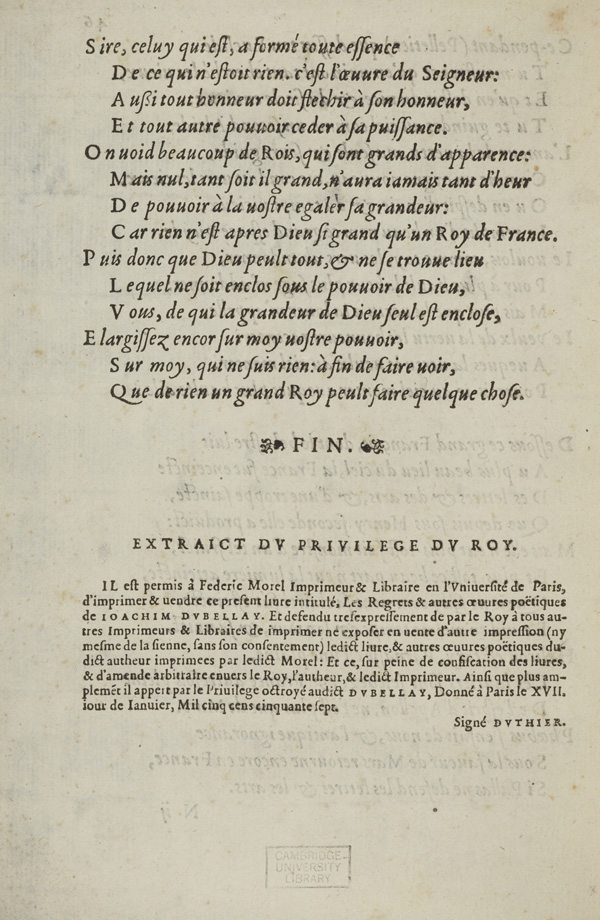 Sire, celuy qui est, a formé toute essence
De ce qui n'estoit rien. c'est l'œuure du Seigneur:
Aussi tout honneur doit flechir à son honneur,
Et tout autre pouuoir ceder à sa puissance.
On uoid beaucoup de Rois, qui sont grands d'apparence:
Mais nul, tant soit il grand, n'aura iamais tant d'heur
De pouuoir à la uostre egaler sa grandeur:
Car rien n'est apres Dieu si grand qu'un Roy de France.
Puis donc que Dieu peult tout, & ne se trouue lieu
Lequel ne soit enclos sous le pouuoir de Dieu,
Vous, de qui la grandeur de Dieu seul est enclose,
Elargissez encor sur moy uostre pouuoir,
Sur moy, qui ne suis rien: à fin de faire uoir,
Que de rien un grand Roy peult faire quelque chose.
FIN.
EXTRAICT DV PRIVILEGE DV ROY.
IL est permis à Federic Morel Imprimeur & Libraire en l'Vniuersité de Paris,
d'imprimer & uendre ce present liure intitulé, Les Regrets & autres œuures poëtiques
de IOACHIM DVBELLAY. Et defendu tresexpressement de par le Roy à tous au-
tres Imprimeurs & Libraires de imprimer ne exposer en uente d'autre impression (ny
mesme de la sienne, sans son consentement) ledict liure, & autres œuures poëtiques du-
dict autheur imprimees par ledict Morel: Et ce, sur peine de confiscation des liures,
& d'amende arbitraire enuers le Roy, l'autheur, & ledict Imprimeur. Ainsi que plus am-
plemẽt il appert par le Priuilege octroyé audict DVBELLAY, Donné à Paris le XVII.
iour de Ianuier, Mil cinq cens cinquante sept.
Signé DVTHIER.
CAMBRIDGE
UNIVERSITY
LIBRARY